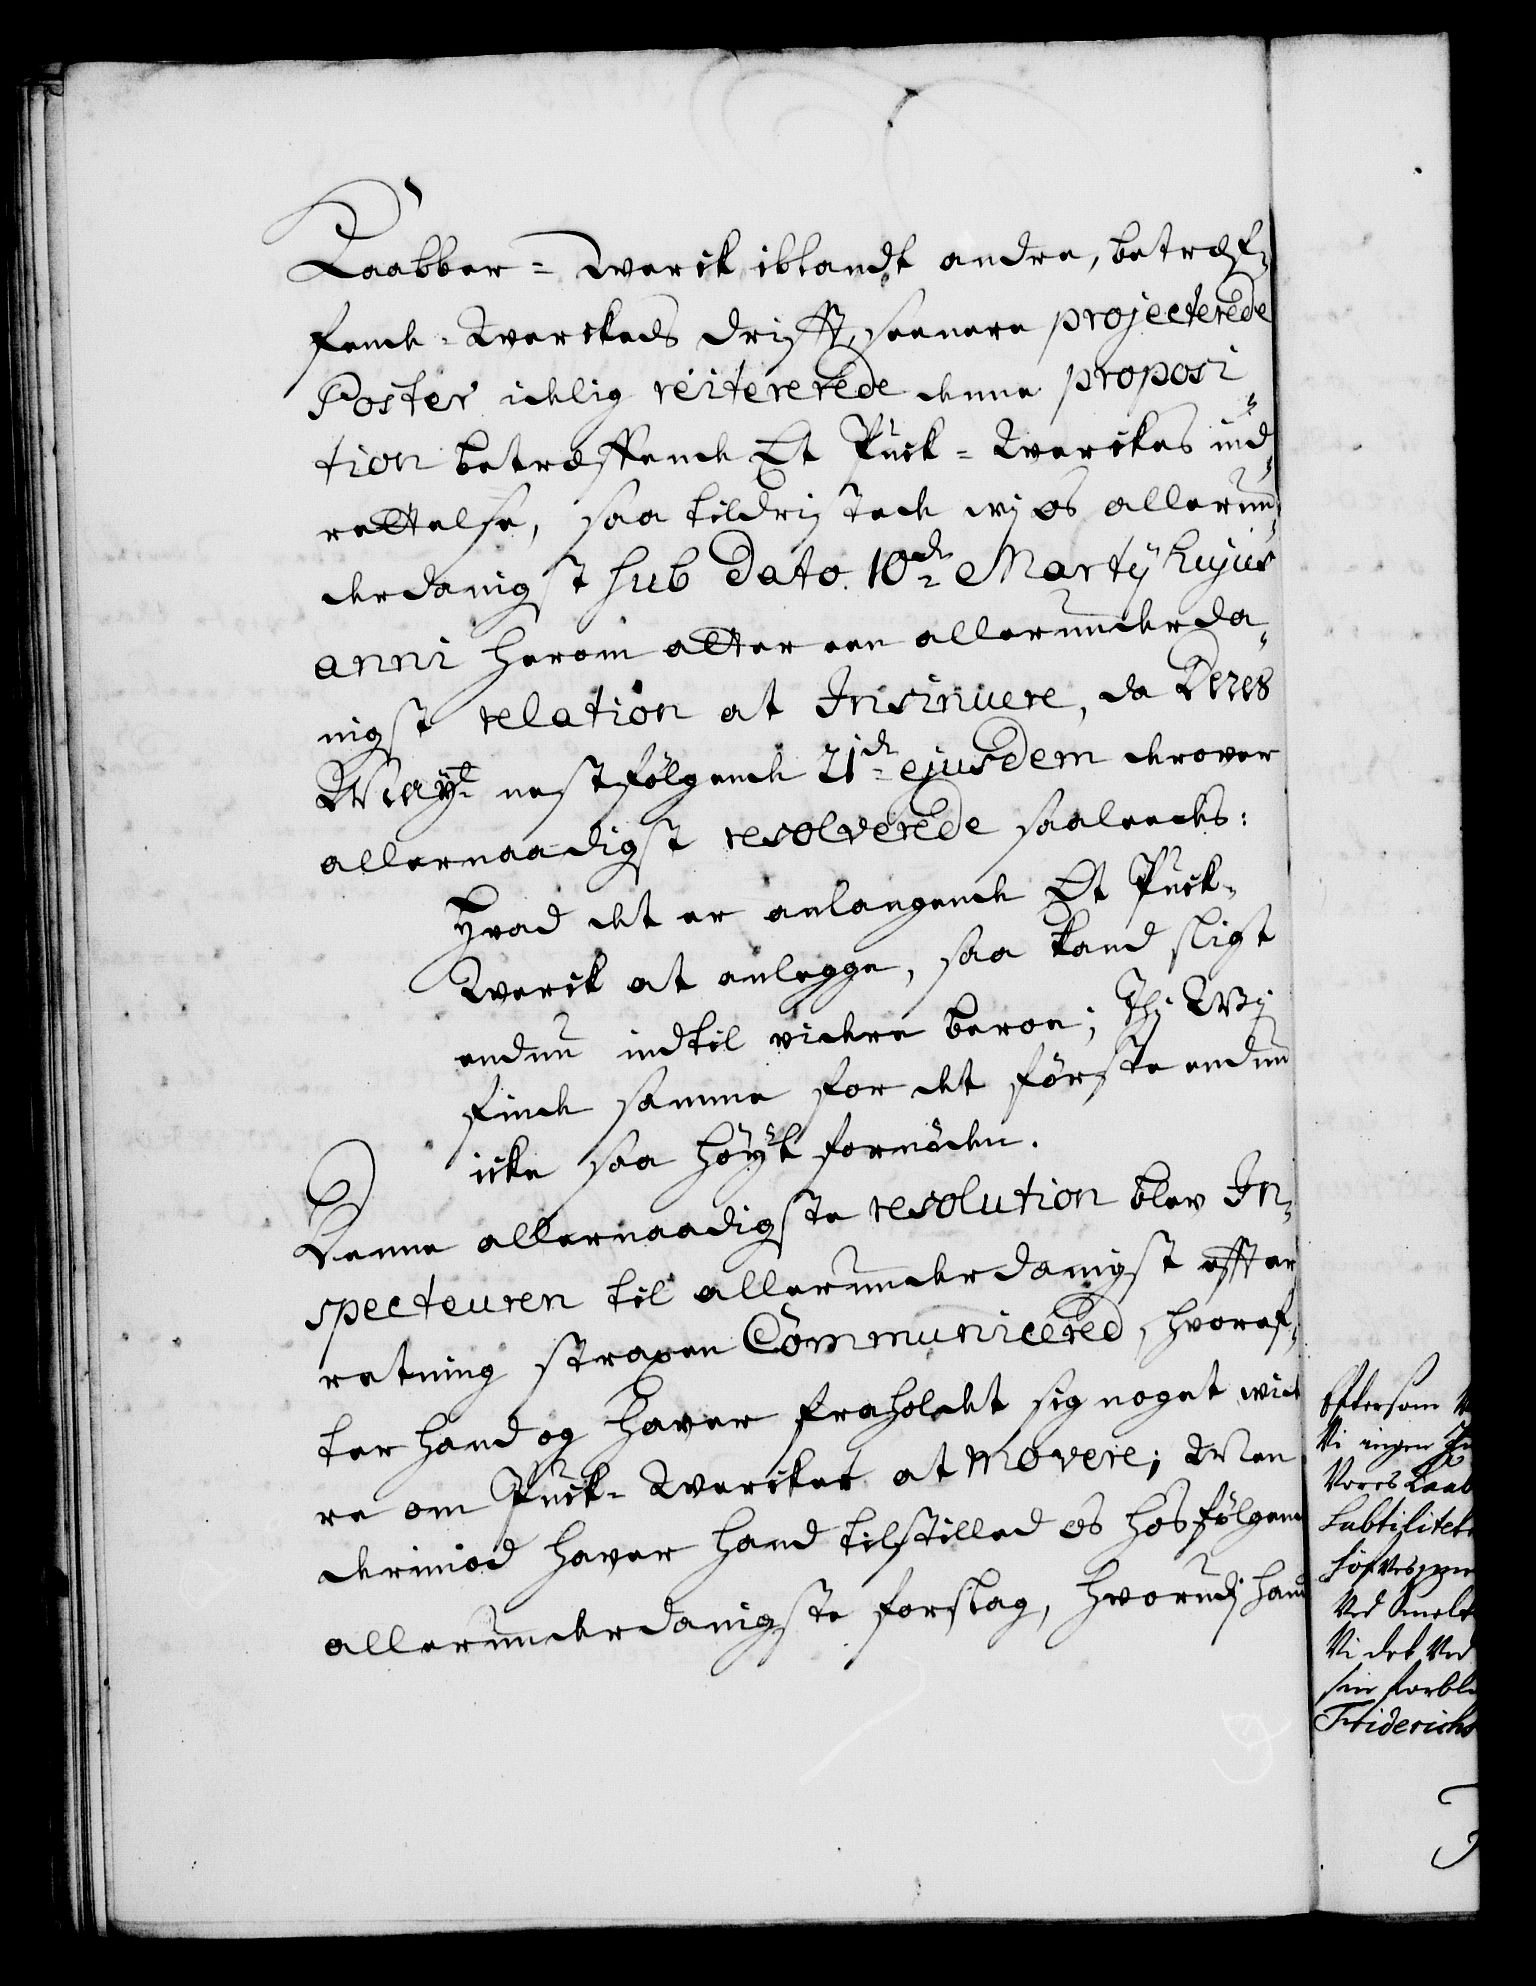 Kaabber-Werck iblandt andre, betræf-
fende Werckeds drifft, seenere projecterede
Poster idelig reitererede denne proposi-
tion betræffende Et Puck-Werckes ind-
rettelse, saa tildristede wj os allerun-
derdanigst sub Dato 10de Martij hujus
anni herom atter een allerunderda-
nigst relation at Insinuere, da Deres
Mayt nestfølgende 21de ejusdem derover
allernaadigst resolverede saaleedes:
Hvad det er anlangende Et Puck-
Werck at anlegge, saa kand sligt
endnu indtil videre beroe; Thj Wj
finde samme for det förste endnu
icke saa höyt fornöden.
Denne allernaadigste resolution blev In-
specteuren til allerunderdanigst effter-
retning straxen Communicered, hvoref-
ter hand og haver fraholdet sig noget wide
re om Puck-Wercket at movere; Men
derimod haver hand tilstilled os hosfølgende
allerunderdanigste forslag, hvorudj hand
Eftersom
Vi ingen
Vores Kaab
Subtilitet
Ved Smelt
Vi det Ved
sin forbli
Friderichs